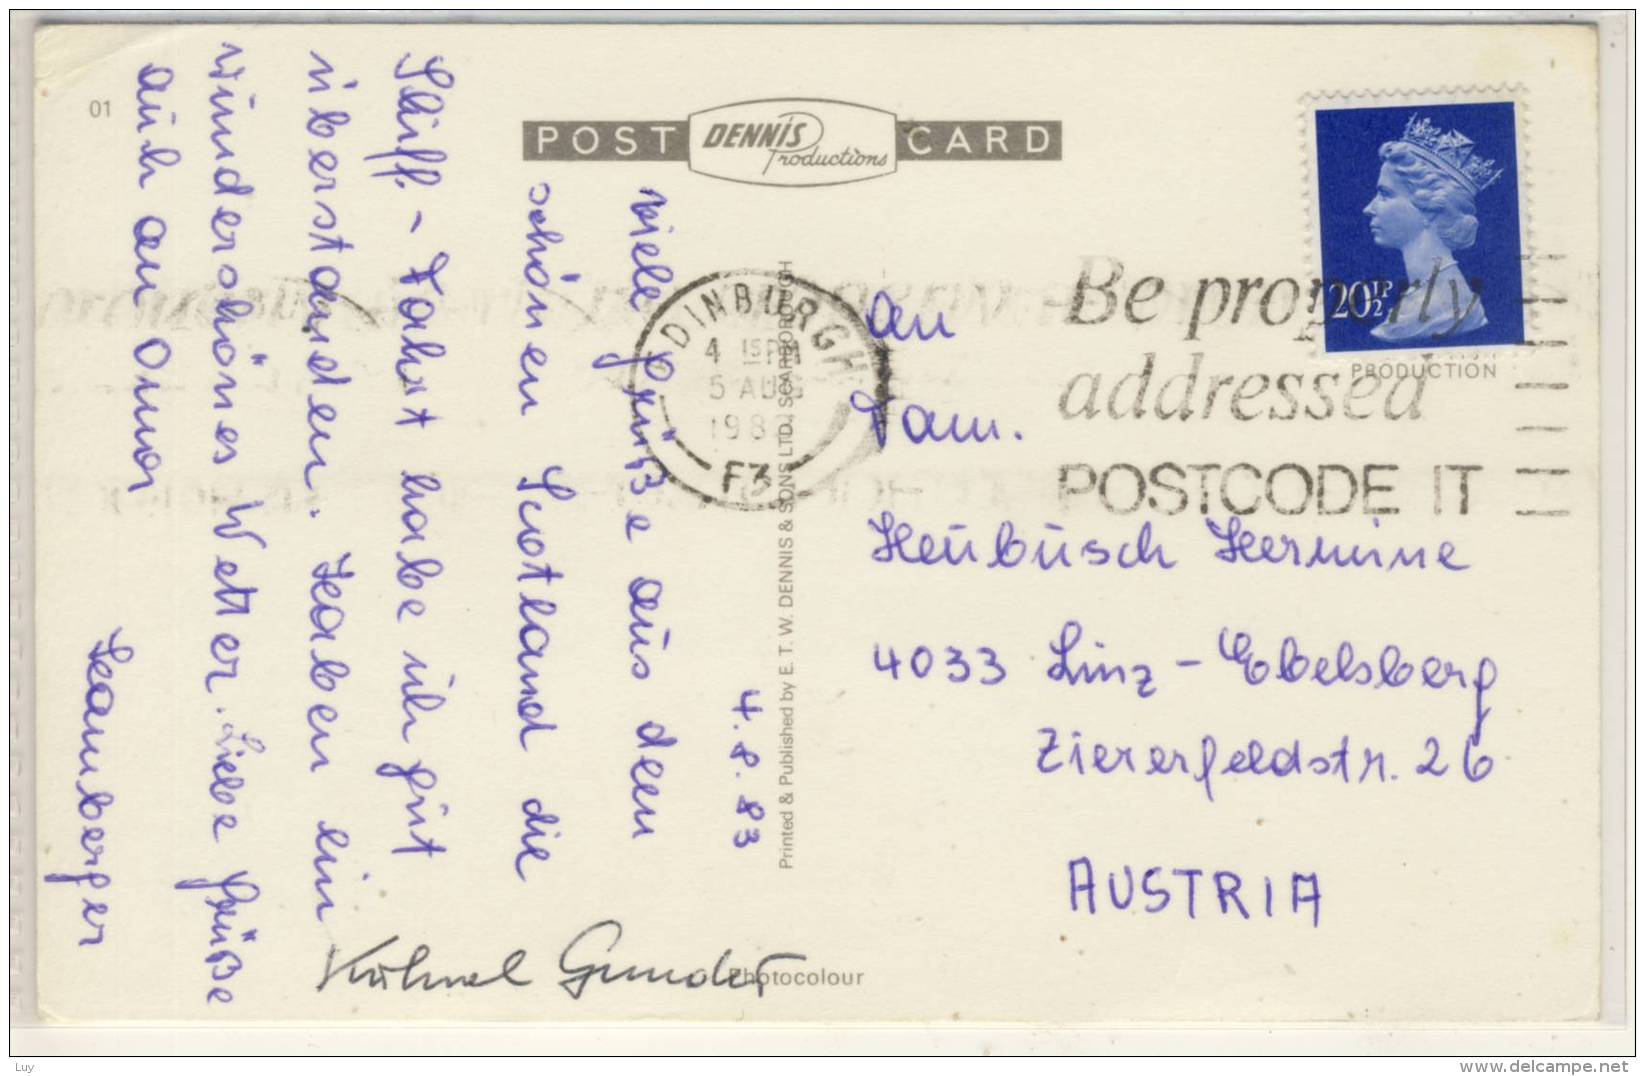 01
POST DENNIS Productions CARD
4.8.83
Viele Grüße aus dem
schönen Scotland die
Schiff-Fahrt habe ich gut
überstanden. Haben ein
wunderschönes Wetter. Liebe Grüße
auch an
Kühnel
Printed & Published by E. T. W. DENNIS & SONS LTD., SCARBOROUGH
Photocolour
EDINBURGH
5 AUG
F3
Be properly
addressed
POSTCODE IT
20½P
PRODUCTION
An
Fam.
Heubusch Hermine
4033 Linz-Ebelsberg
Ziererfeldstr. 26
AUSTRIA
Luy
www.delcampe.net